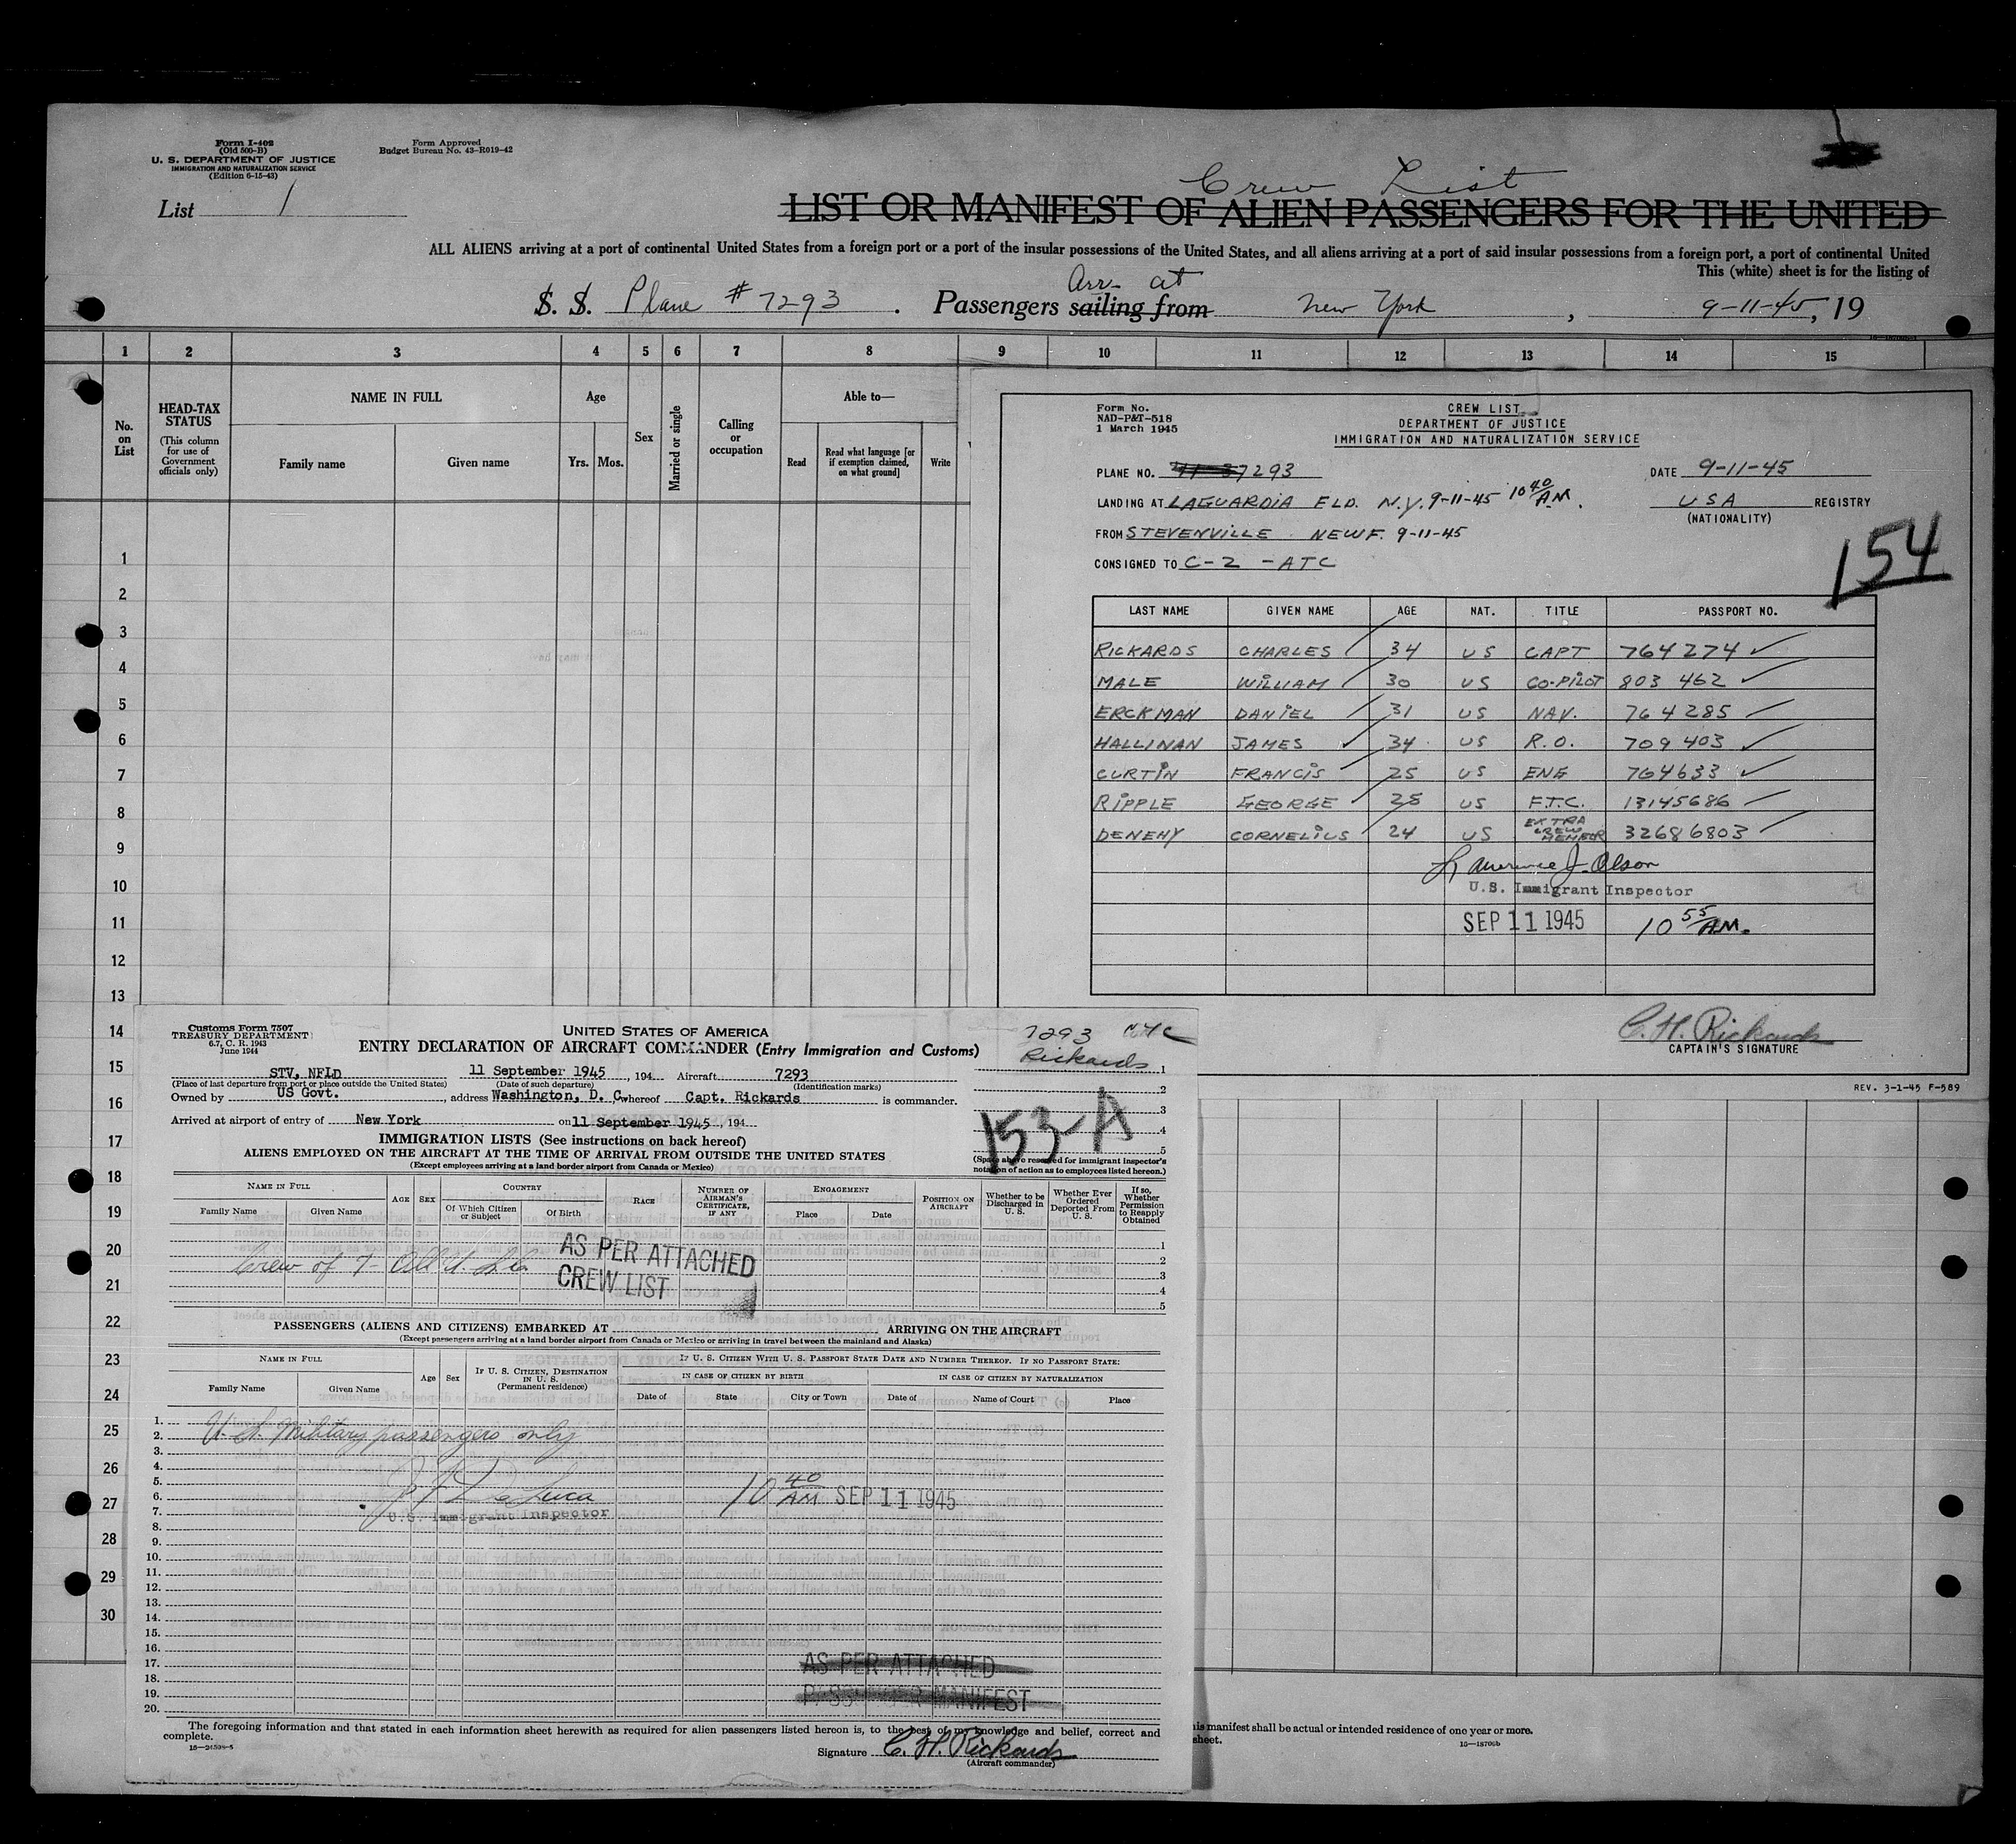 Form I-402
(Old 500-B)
U. S. DEPARTMENT OF JUSTICE
IMMIGRATION AND NATURALIZATION SERVICE
(Edition 6-15-43)
Form Approved
Budget Bureau No. 43-R019-42
List 1
Crew List
LIST OR MANIFEST OF ALIEN PASSENGERS FOR THE UNITED
ALL ALIENS arriving at a port of continental United States from a foreign port or a port of the insular possessions of the United States, and all aliens arriving at a port of said insular possessions from a foreign port, a port of continental United
This (white) sheet is for the listing of
Arr at
S. S. Plane # 7293. Passengers sailing from New York, 9-11-45, 19
1 2 3 4 5 6 7 8 9 10 11 12 13 14 15
No. on List
HEAD-TAX STATUS
(This column for use of Government officials only)
NAME IN FULL
Family name Given name
Age
Yrs. Mos.
Sex
Married or single
Calling or occupation
Able to—
Read
Read what language [or if exemption claimed, on what ground]
Write
1
2
3
4
5
6
7
8
9
10
11
12
13
14
15
16
17
18
19
20
21
22
23
24
25
26
27
28
29
30
Form No.
NAD-P&T-518
1 March 1945
CREW LIST
DEPARTMENT OF JUSTICE
IMMIGRATION AND NATURALIZATION SERVICE
PLANE NO. 7293 DATE 9-11-45
LANDING AT LAGUARDIA FLD. N.Y. 9-11-45 10 40 A.M. USA REGISTRY
(NATIONALITY)
FROM STEVENVILLE NEWF. 9-11-45
CONSIGNED TO C-2 -ATC
154
LAST NAME GIVEN NAME AGE NAT. TITLE PASSPORT NO.
RICKARDS CHARLES 34 US CAPT 764274
MALE WILLIAM 30 US CO-PILOT 803 462
ERCKMAN DANIEL 31 US NAV. 764285
HALLINAN JAMES 34 US R.O. 709403
CURTIN FRANCIS 25 US ENG 764633
RIPPLE GEORGE 25 US F.T.C. 13145686
DENEHY CORNELIUS 24 US EXTRA CREW MEMBER 32686803
Lawrence J. Olson
U.S. Immigrant Inspector
SEP 11 1945 10 55 AM.
C. H. Rickards
CAPTAIN'S SIGNATURE
REV. 3-1-45 F-589
Customs Form 7507
TREASURY DEPARTMENT
6.7, C. R. 1943
June 1944
UNITED STATES OF AMERICA
ENTRY DECLARATION OF AIRCRAFT COMMANDER (Entry Immigration and Customs)
7293 NYC
Rickards
STV, NFLD 11 September 1945, 194 Aircraft 7293
(Place of last departure from port or place outside the United States) (Date of such departure) (Identification marks)
Owned by US Govt., address Washington, D. C. whereof Capt. Rickards is commander.
Arrived at airport of entry of New York on 11 September 1945, 194
1
2
3
4
5
153-A
(Space above reserved for immigrant inspector's notation of action as to employees listed hereon.)
IMMIGRATION LISTS (See instructions on back hereof)
ALIENS EMPLOYED ON THE AIRCRAFT AT THE TIME OF ARRIVAL FROM OUTSIDE THE UNITED STATES
(Except employees arriving at a land border airport from Canada or Mexico)
NAME IN FULL
Family Name Given Name
AGE SEX
COUNTRY
Of Which Citizen or Subject Of Birth
RACE
NUMBER OF AIRMAN'S CERTIFICATE, IF ANY
ENGAGEMENT
Place Date
POSITION ON AIRCRAFT
Whether to be Discharged in U. S.
Whether Ever Ordered Deported From U. S.
If so, Whether Permission to Reapply Obtained
1
2
3
4
5
Crew of 7- All U. S. C.
AS PER ATTACHED
CREW LIST
PASSENGERS (ALIENS AND CITIZENS) EMBARKED AT ARRIVING ON THE AIRCRAFT
(Except passengers arriving at a land border airport from Canada or Mexico or arriving in travel between the mainland and Alaska)
NAME IN FULL
Family Name Given Name
Age Sex
IF U. S. CITIZEN, DESTINATION IN U. S.
(Permanent residence)
IF U. S. CITIZEN WITH U. S. PASSPORT STATE DATE AND NUMBER THEREOF. IF NO PASSPORT STATE:
IN CASE OF CITIZEN BY BIRTH IN CASE OF CITIZEN BY NATURALIZATION
Date of State City or Town Date of Name of Court Place
1.
2.
3.
4.
5.
6.
7.
8.
9.
10.
11.
12.
13.
14.
15.
16.
17.
18.
19.
20.
U. S. Military passengers only
De Luca 10 40 AM SEP 11 1945
U.S. Immigrant Inspector
AS PER ATTACHED
PASSENGER MANIFEST
The foregoing information and that stated in each information sheet herewith as required for alien passengers listed hereon is, to the best of my knowledge and belief, correct and complete.
Signature C. H. Rickards
(Aircraft commander)
is manifest shall be actual or intended residence of one year or more.
sheet.